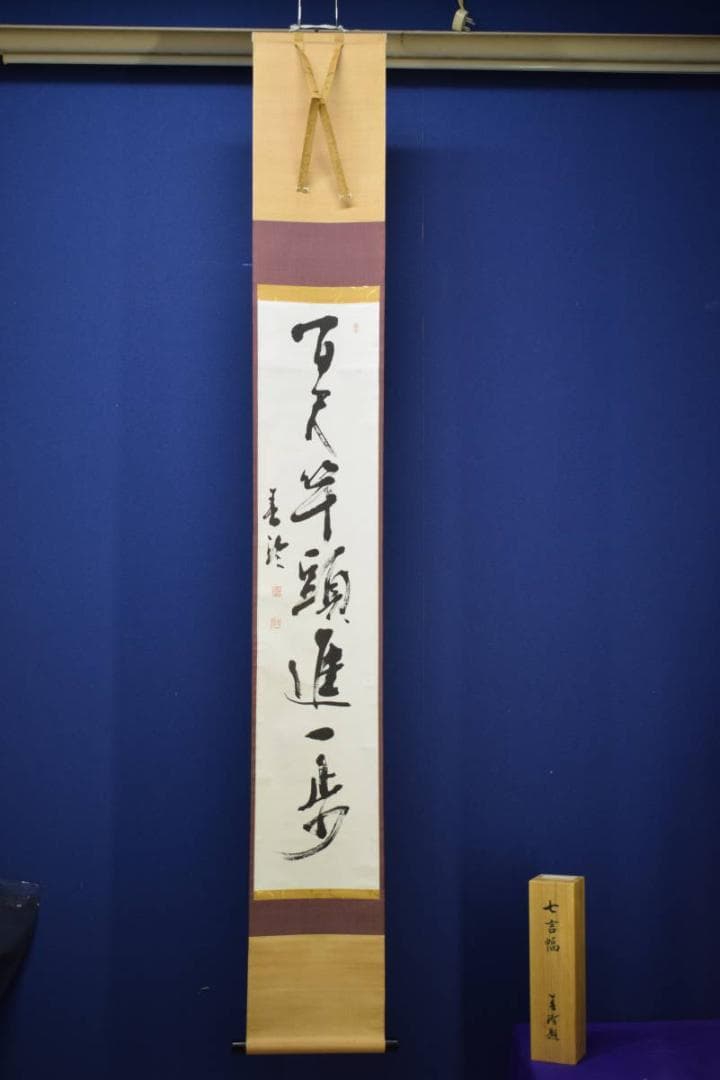 百尺竿頭進一歩
善
七吉幅
善
題